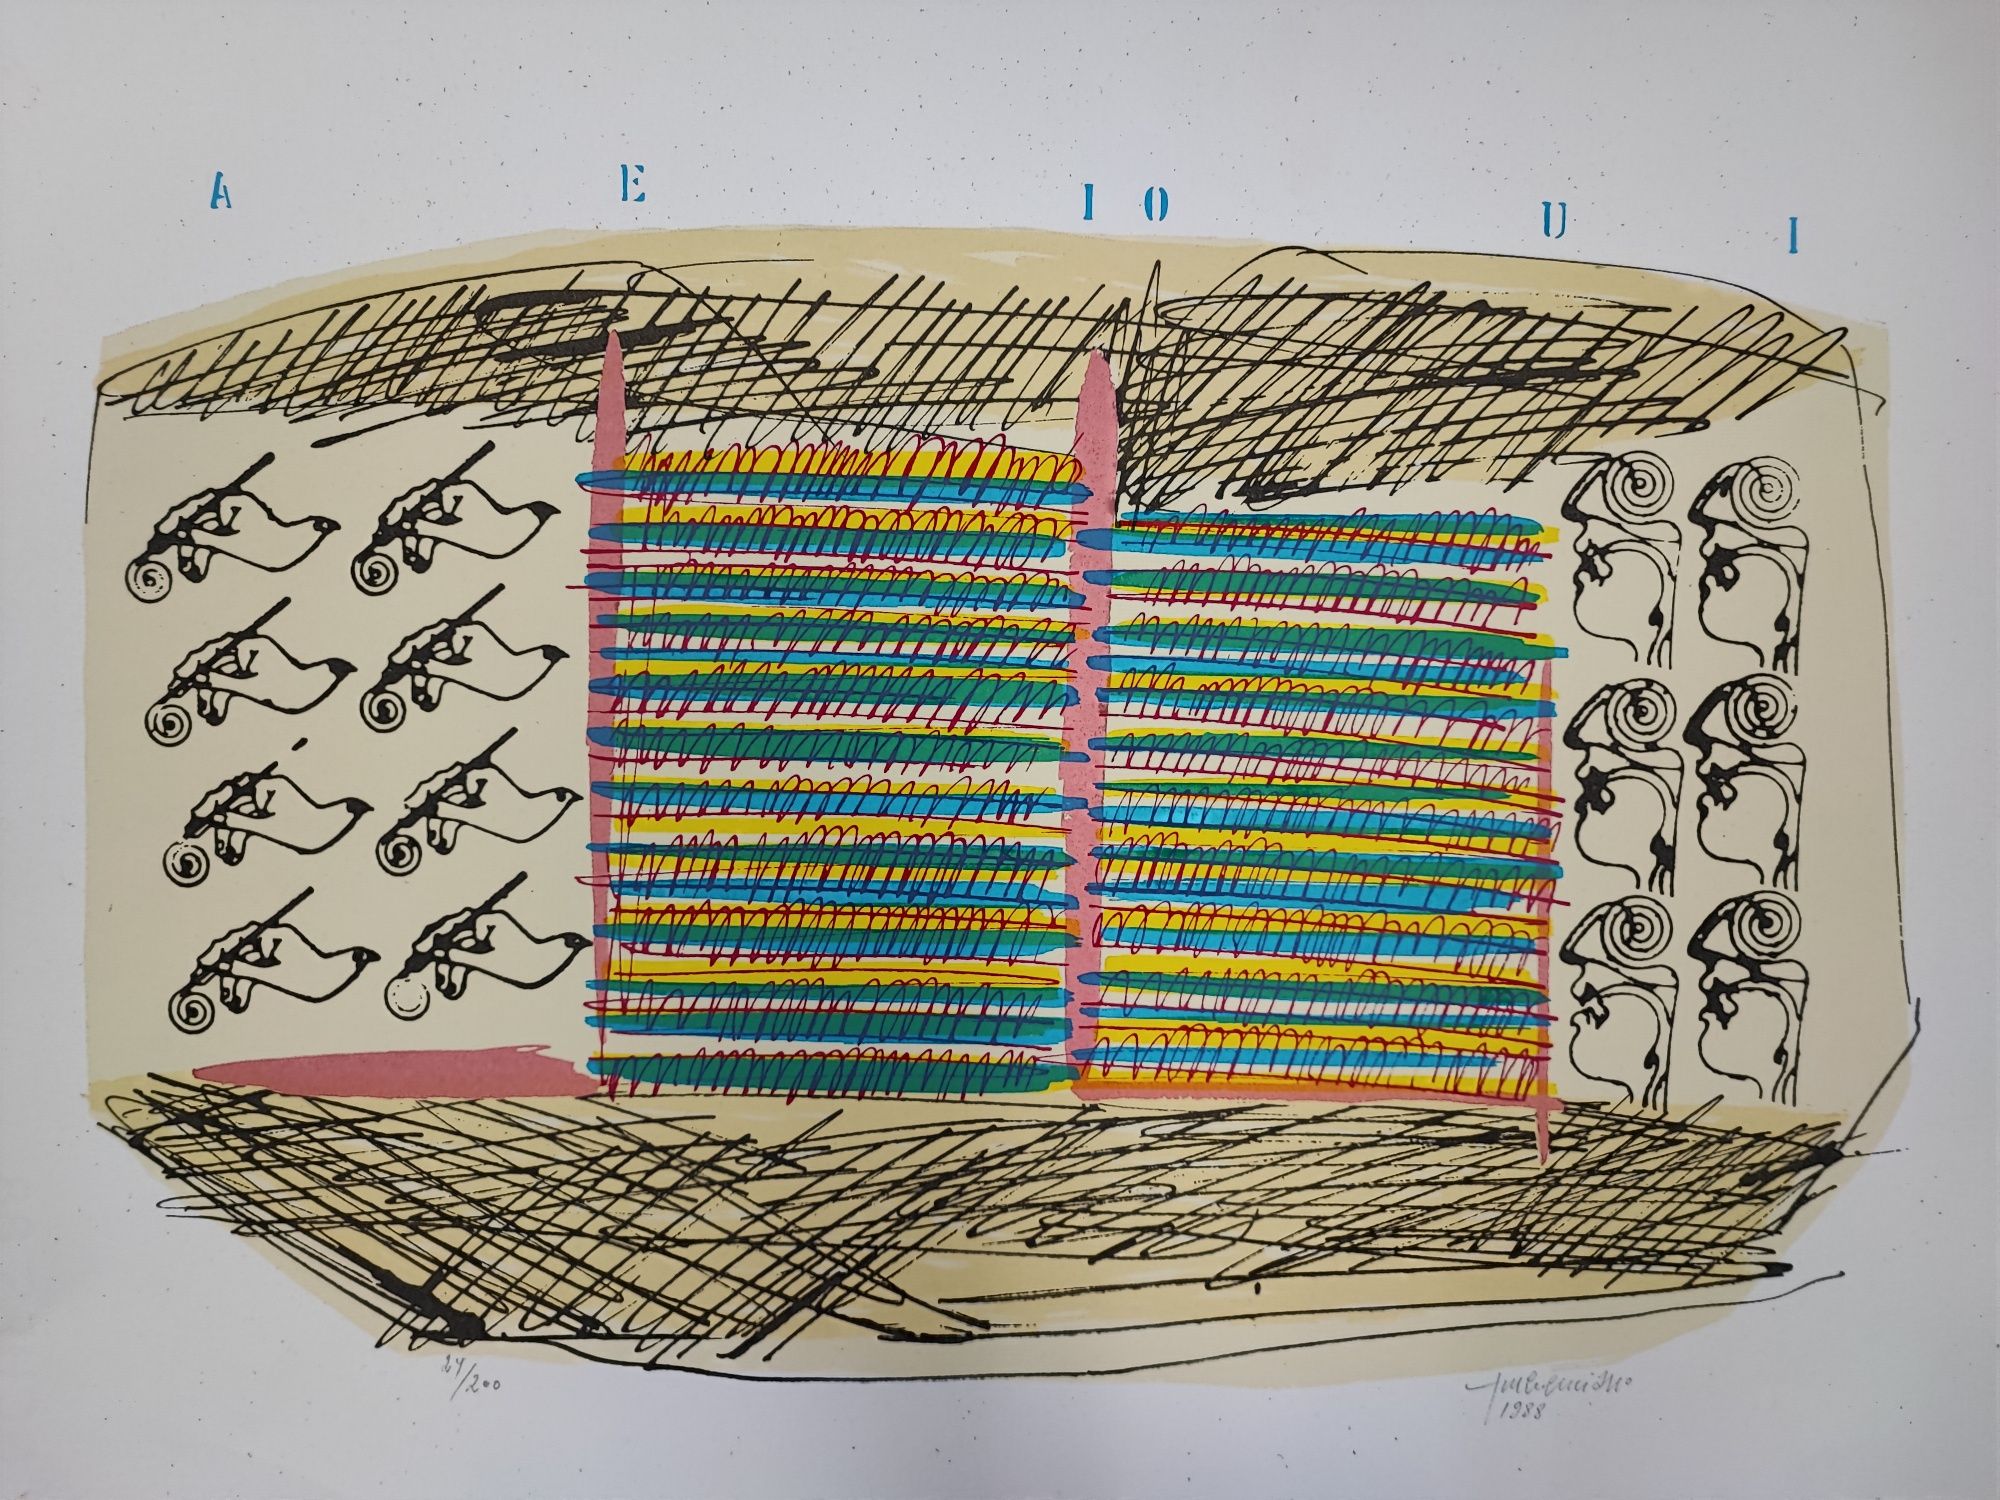 A E I O U I
24/200
1988